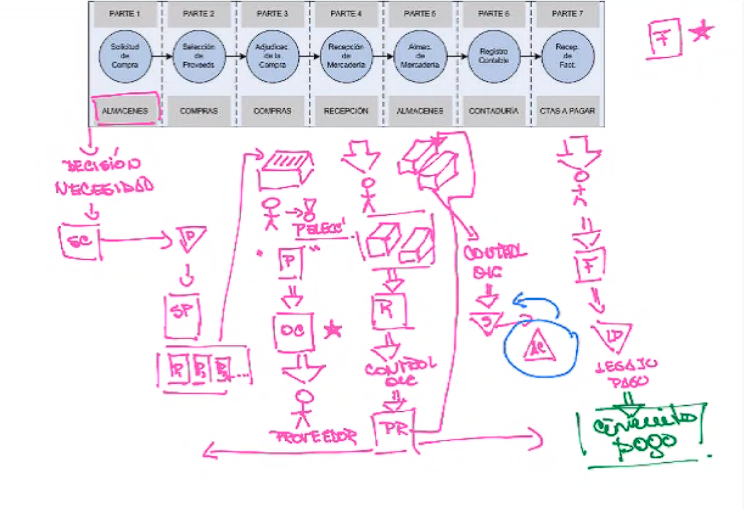 PARTE 1
PARTE 2
PARTE 3
PARTE 4
PARTE 5
PARTE 6
PARTE 7
Solicitud
de
Compra
Selección
de
Proveeds
Adjudicac.
de la
Compra
Recepción
de
Mercadería
Almac.
de
Mercadería
Registro
Contable
Recep.
de
Fact.
ALMACENES
COMPRAS
COMPRAS
RECEPCIÓN
ALMACENES
CONTADURÍA
CTAS A PAGAR
F
DECISIÓN
NECESIDAD
SC
P
SP
P1 P2
P
OC
PROVEEDOR
R
CONTROL
PR
CONTROL
F
LP
LEGAJO
PAGO
circuito
pago